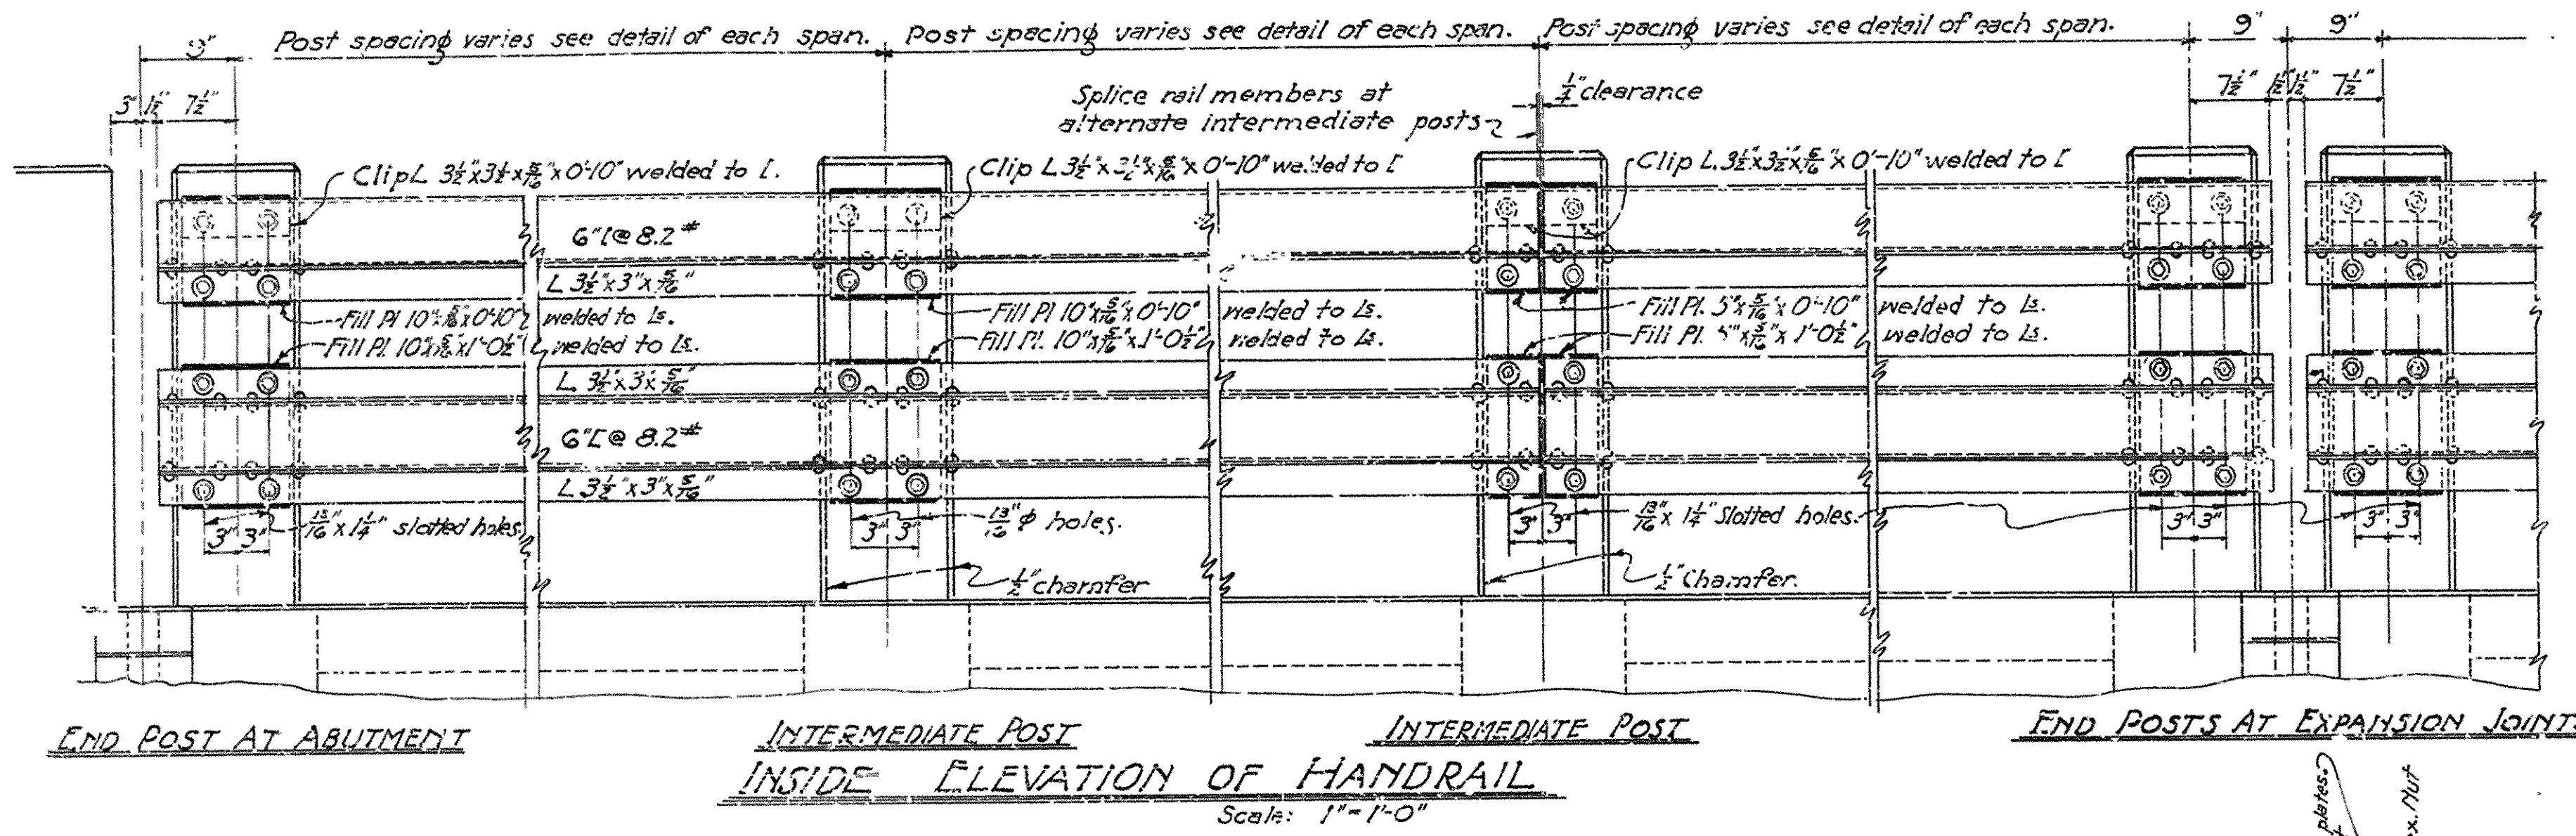 Post spacing varies see detail of each span. Post spacing varies see detail of each span. Post spacing varies see detail of each span.
9" 9" 9"
3" 1½" 7½"
Splice rail members at
alternate intermediate posts
¼" clearance
7½" 1½" 1½" 7½"
Clip L 3½"x3½"x5/16"x0'-10" welded to [.
Clip L 3½"x3½"x5/16"x0'-10" welded to [
Clip L 3½"x3½"x5/16"x0'-10" welded to [
6"[@ 8.2#
L 3½"x3"x5/16"
Fill Pl 10"x5/16"x0'-10" welded to Ls.
Fill Pl 10"x5/16"x0'-10" welded to Ls.
Fill Pl. 5"x5/16"x0'-10" welded to Ls.
Fill Pl. 10"x5/16"x1'-0½" welded to Ls.
Fill Pl. 10"x5/16"x1'-0½" welded to Ls.
Fill Pl. 5"x5/16"x1'-0½" welded to Ls.
L 3½"x3"x5/16"
6"[@ 8.2#
L 3½"x3"x5/16"
13/16"x1¼" slotted holes.
13/16" φ holes.
13/16"x1¼" Slotted holes.
3" 3" 3" 3" 3" 3" 3" 3" 3" 3"
½" chamfer
½" Chamfer.
END POST AT ABUTMENT
INTERMEDIATE POST
INTERMEDIATE POST
END POSTS AT EXPANSION JOINTS
INSIDE ELEVATION OF HANDRAIL
Scale: 1"=1'-0"
plates.
Nut